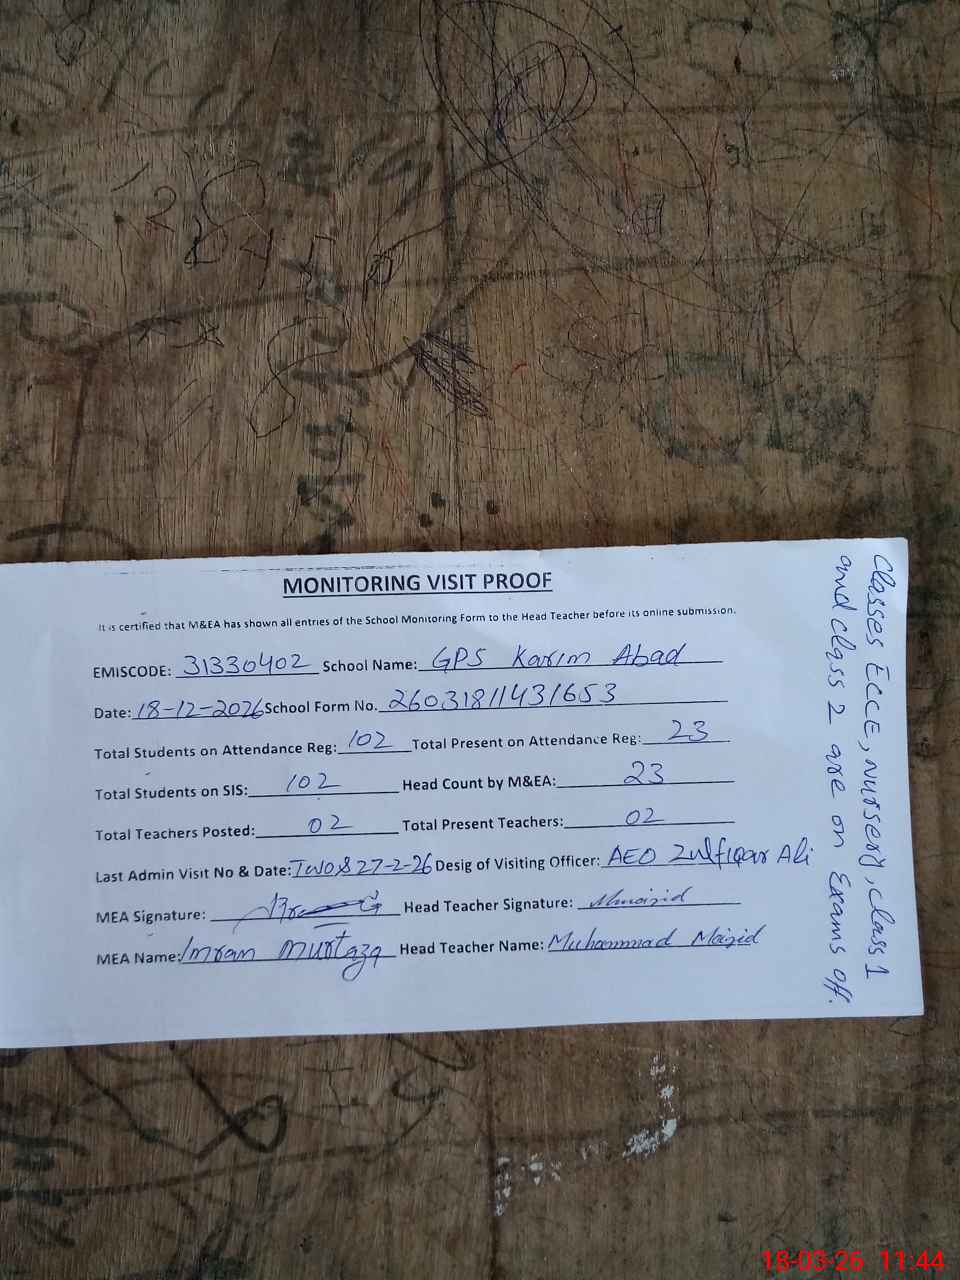 MONITORING VISIT PROOF
It is certified that M&EA has shown all entries of the School Monitoring Form to the Head Teacher before its online submission.
EMISCODE: 31330402 School Name: GPS Karim Abad
Date: 18-12-2026 School Form No. 26031811431653
Total Students on Attendance Reg: 102 Total Present on Attendance Reg: 23
Total Students on SIS: 102 Head Count by M&EA: 23
Total Teachers Posted: 02 Total Present Teachers: 02
Last Admin Visit No & Date: Two & 27-2-26 Desig of Visiting Officer: AEO Zulfiqar Ali
MEA Signature: Head Teacher Signature:
MEA Name: Imran Murtaza Head Teacher Name: Muhammad Majid
Classes ECCE, Nursery, Class 1
and class 2 are on Exams off.
18-03-26 11:44